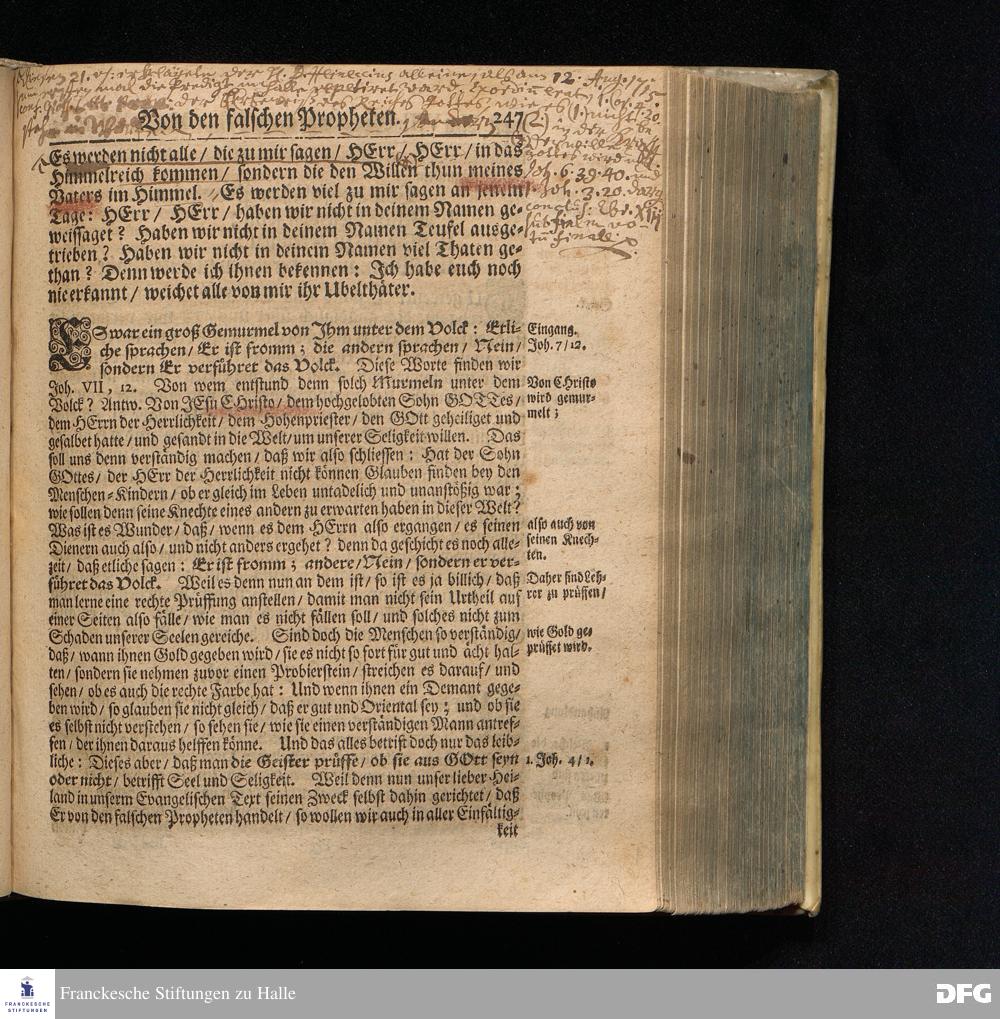 alleine, als am 12. Aug.
Von den falschen Propheten. 247
Es werden nicht alle / die zu mir sagen / HErr / HErr / in das
Himmelreich kommen / sondern die den Willen thun meines
Vaters im Himmel. Es werden viel zu mir sagen an jenem
Tage: HErr / HErr / haben wir nicht in deinem Namen ge-
weissaget? Haben wir nicht in deinem Namen Teufel ausge-
trieben? Haben wir nicht in deinem Namen viel Thaten ge-
than? Denn werde ich ihnen bekennen: Ich habe euch noch
nie erkannt / weichet alle von mir ihr Ubelthäter.
Joh. 6. 39. 40. und
3. 20.
ES war ein groß Gemurmel von Ihm unter dem Volck: Etli-
che sprachen / Er ist fromm; die andern sprachen / Nein /
sondern Er verführet das Volck. Diese Worte finden wir
Joh. VII, 12. Von wem entstund denn solch Murmeln unter dem
Volck? Antw. Von JEsu Christo / dem hochgelobten Sohn GOTTes /
dem HErrn der Herrlichkeit / dem Hohenpriester / den GOtt geheiliget und
gesalbet hatte / und gesandt in die Welt / um unserer Seligkeit willen. Das
soll uns denn verständig machen / daß wir also schliessen: Hat der Sohn
GOttes / der HErr der Herrlichkeit nicht können Glauben finden bey den
Menschen-Kindern / ob er gleich im Leben untadelich und unanstößig war;
wie sollen denn seine Knechte eines andern zu erwarten haben in dieser Welt?
Was ist es Wunder / daß / wenn es dem HErrn also ergangen / es seinen
Dienern auch also / und nicht anders ergehet? denn da geschicht es noch alle-
zeit / daß etliche sagen: Er ist fromm; andere / Nein / sondern er ver-
führet das Volck. Weil es denn nun an dem ist / so ist es ja billich / daß
man lerne eine rechte Prüffung anstellen / damit man nicht sein Urtheil auf
einer Seiten also fälle / wie man es nicht fällen soll / und solches nicht zum
Schaden unserer Seelen gereiche. Sind doch die Menschen so verständig /
daß / wann ihnen Gold gegeben wird / sie es nicht so fort für gut und ächt hal-
ten / sondern sie nehmen zuvor einen Probierstein / streichen es darauf / und
sehen / ob es auch die rechte Farbe hat: Und wenn ihnen ein Demant gege-
ben wird / so glauben sie nicht gleich / daß er gut und Oriental sey; und ob sie
es selbst nicht verstehen / so sehen sie / wie sie einen verständigen Mann antref-
fen / der ihnen daraus helffen könne. Und das alles betrift doch nur das leib-
liche: Dieses aber / daß man die Geister prüffe / ob sie aus GOtt seyn
oder nicht / betrifft Seel und Seligkeit. Weil denn nun unser lieber Hei-
land in unserm Evangelischen Text seinen Zweck selbst dahin gerichtet / daß
Er von den falschen Propheten handelt / so wollen wir auch in aller Einfältig-
keit
Eingang.
Joh. 7 / 12.
Von Christo
wird gemur-
melt;
also auch von
seinen Knech-
ten.
Daher sind Leh-
rer zu prüffen /
wie Gold ge-
prüffet wird.
1. Joh. 4 / 1.
FRANCKESCHE
STIFTUNGEN
Franckesche Stiftungen zu Halle
DFG